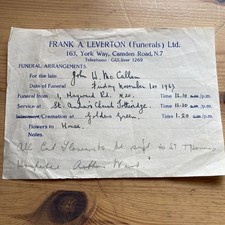 FRANK A LEVERTON (Funerals) Ltd.
163, York Way, Camden Road, N.7
Telephone: GULliver 1269
FUNERAL ARRANGEMENTS
For the late John H. McCallum
Date of Funeral Friday November 1st 1963
Funeral from Haywood Rd. N20. Time 11.10 a.m./p.m.
Service at St. Andrew's Church Totteridge. Time 11.20 a.m./p.m.
Interment/Cremation at Golders Green. Time 1.20 a.m./p.m.
Flowers to House.
Notes.
All Cut Flowers to be sent to St Thomas
Hospital Ward